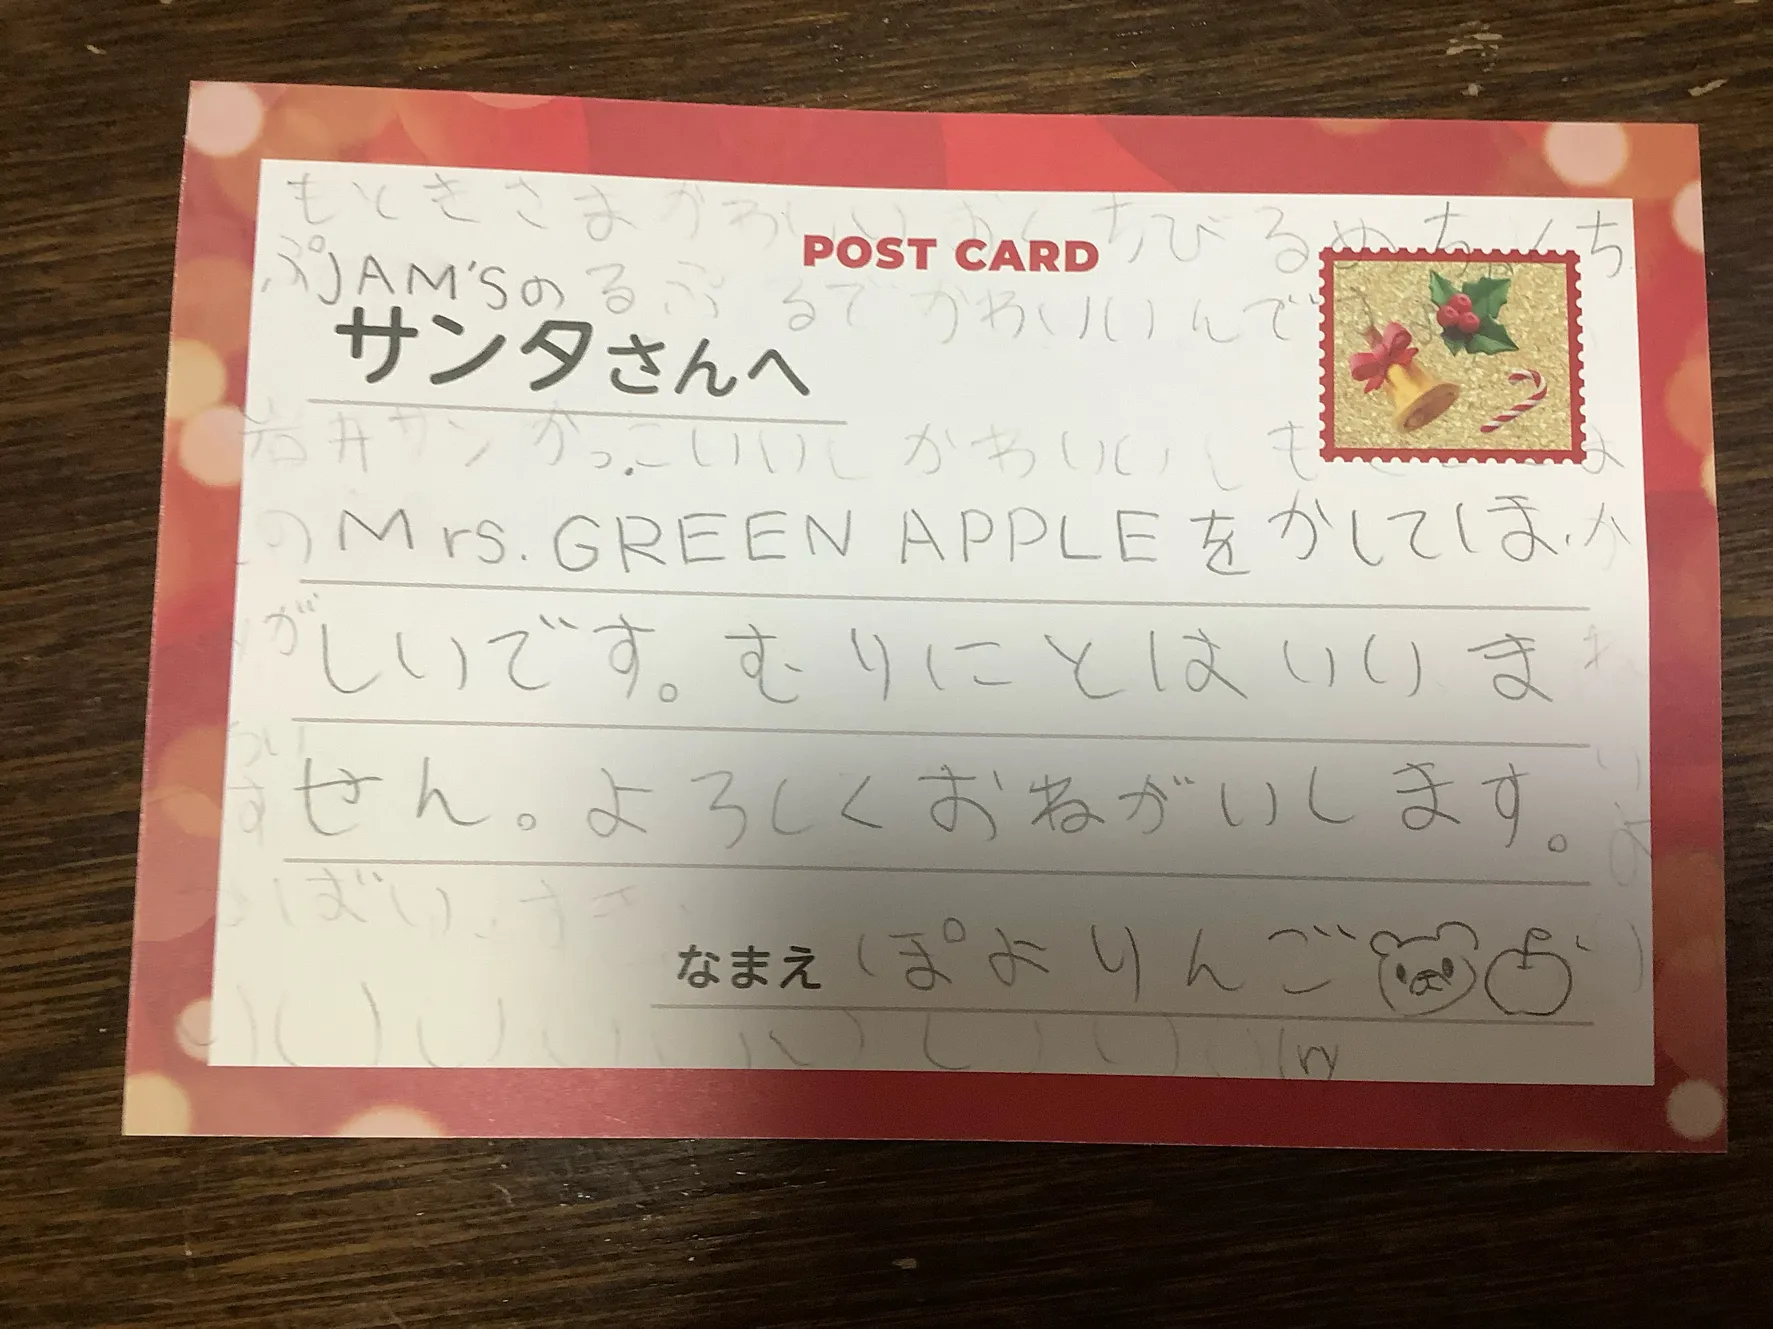 もときさまかわいいおくちびるめちゃくち
POST CARD
ぷJAM'Sのるぷるでかわいいんで
サンタさんへ
岩井サンかっこいいしかわいいしも
のMrs. GREEN APPLEをかしてほ
がしいです。むりにとはいいま
せん。よろしくおねがいします。
なまえ ぽよりんご